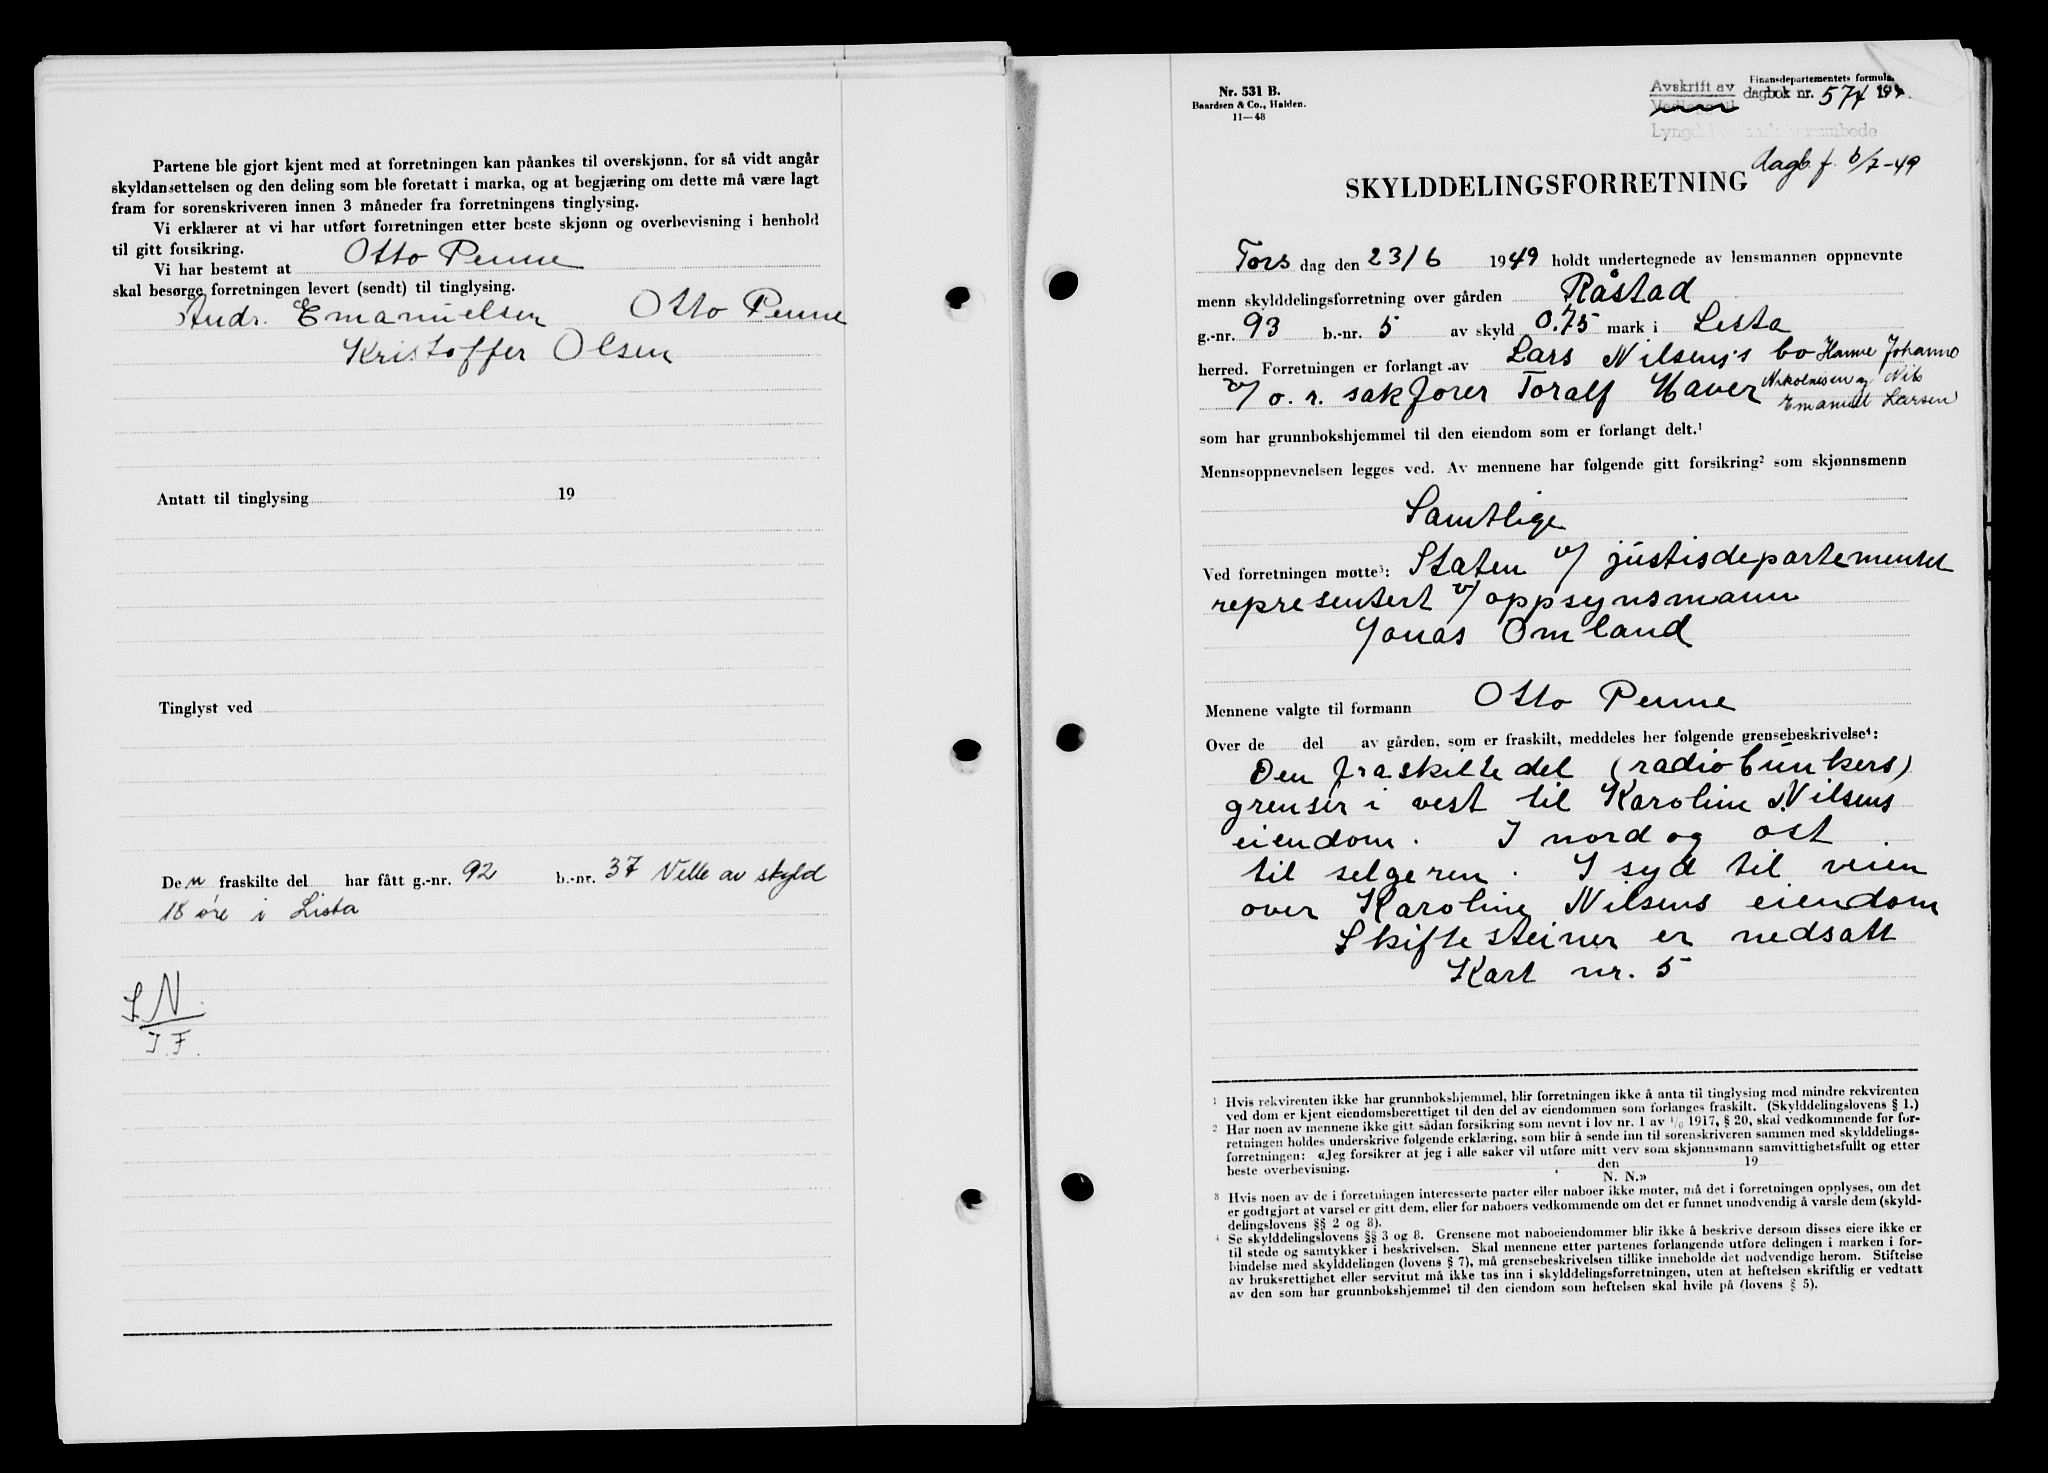 Partene ble gjort kjent med at forretningen kan påankes til overskjønn, for så vidt angår
skyldansettelsen og den deling som ble foretatt i marka, og at begjæring om dette må være lagt
fram for sorenskriveren innen 3 måneder fra forretningens tinglysing.
Vi erklærer at vi har utført forretningen etter beste skjønn og overbevisning i henhold
til gitt forsikring.
Vi har bestemt at Otto Penne
skal besørge forretningen levert (sendt) til tinglysing.
Andr. Emanuelsen Otto Penne
Kristoffer Olsen
Antatt til tinglysing 19
Tinglyst ved
Den fraskilte del har fått g.-nr. 92 b.-nr. 37 Velle av skyld
18 øre i Lista
S N.
J. F.
Nr. 531 B.
Baardsen & Co., Halden.
11—48
Finansdepartementets formular
Avskrift av dagbok nr. 574 19
Lyngdal
dagb. f. 6/7-49
SKYLDDELINGSFORRETNING
Tors dag den 23/6 1949 holdt undertegnede av lensmannen oppnevnte
menn skylddelingsforretning over gården Råstad
g.-nr. 93 b.-nr. 5 av skyld 0.75 mark i Lista
herred. Forretningen er forlangt av Lars Nilsens's bo Hanne Johanne
v/ o. r. sakfører Toralf Haver Nikolaisen og Nils
Emanuel Larsen
som har grunnbokshjemmel til den eiendom som er forlangt delt.¹
Mennsoppnevnelsen legges ved. Av mennene har følgende gitt forsikring² som skjønnsmenn
Samtlige
Ved forretningen møtte³: Staten v/ justisdepartementet
representert v/ oppsynsmann
Jonas Omland
Mennene valgte til formann Otto Penne
Over de del av gården, som er fraskilt, meddeles her følgende grensebeskrivelse⁴:
Den fraskilte del (radiobunkers)
grenser i vest til Karoline Nilsens
eiendom. I nord og øst
til selgeren. I syd til veien
over Karoline Nilsens eiendom
Skiftesteiner er nedsatt
Kart nr. 5
¹ Hvis rekvirenten ikke har grunnbokshjemmel, blir forretningen ikke å anta til tinglysing med mindre rekvirenten
ved dom er kjent eiendomsberettiget til den del av eiendommen som forlanges fraskilt. (Skylddelingslovens § 1.)
² Har noen av mennene ikke gitt sådan forsikring som nevnt i lov nr. 1 av 1/6 1917, § 20, skal vedkommende før for-
retningen holdes underskrive følgende erklæring, som blir å sende inn til sorenskriveren sammen med skylddelings-
forretningen: «Jeg forsikrer at jeg i alle saker vil utføre mitt verv som skjønnsmann samvittighetsfullt og etter
beste overbevisning. den 19
N. N.»
³ Hvis noen av de i forretningen interesserte parter eller naboer ikke møter, må det i forretningen opplyses, om det
er godtgjort at varsel er gitt dem, eller for naboers vedkommende om det er funnet unødvendig å varsle dem (skyld-
delingslovens §§ 2 og 8).
⁴ Se skylddelingslovens §§ 3 og 8. Grensene mot naboeiendommer blir ikke å beskrive dersom disses eiere ikke er
til stede og samtykker i beskrivelsen. Skal mennene etter partenes forlangende utføre delingen i marken i for-
bindelse med skylddelingen (lovens § 7), må grensebeskrivelsen tillike inneholde det nødvendige herom. Stiftelse
av bruksrettighet eller servitut må ikke tas inn i skylddelingsforretningen, uten at heftelsen skriftlig er vedtatt
av den som har grunnbokshjemmel til den eiendom som heftelsen skal hvile på (lovens § 5).